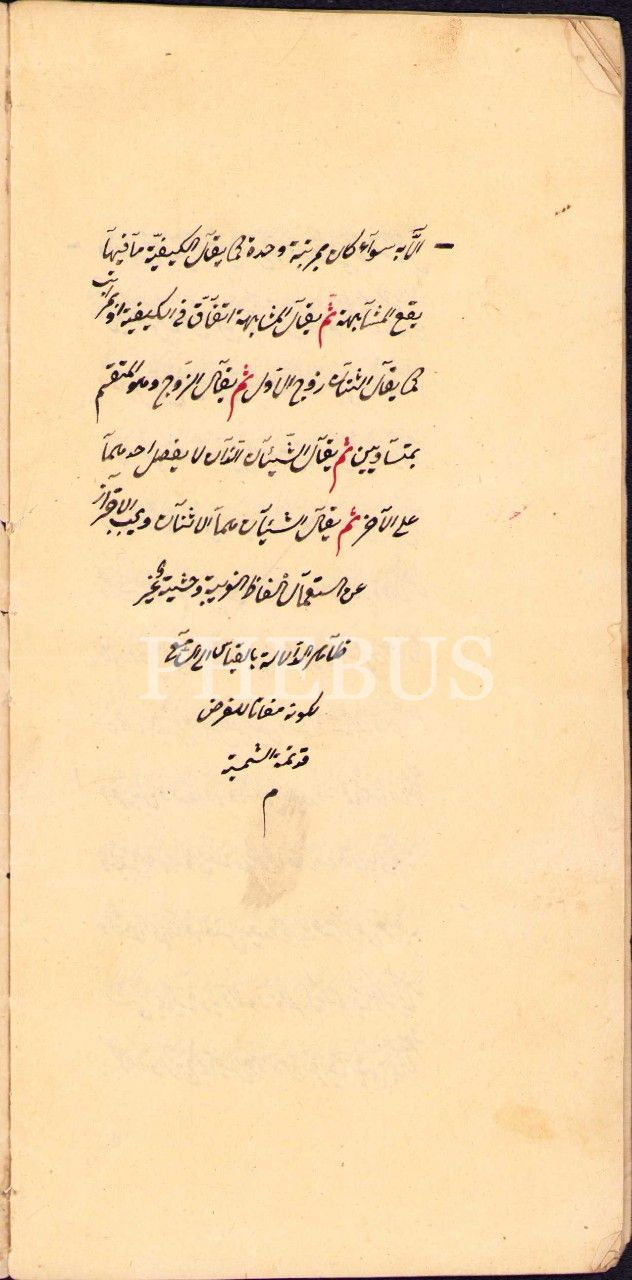 الا به سوآء كان بمرتبة وحدة كما يقال الكيفية ما فيها
يقع المشابهة ثم يقال المشابهة اتفاق في الكيفية او بمراتب
كما يقال الاثنان زوج الاول ثم يقال الزوج وهو المنقسم
بمتساويين ثم يقال الشيئان اللذان لا يفضل احدهما
على الآخر ثم يقال الشيئان هما الاثنان ويجب الاحتراز
عن استعمال الفاظ غريبة وحشية غير
ظاهر الدلالة بالقياس الى السامع
لكونه مفوتا للغرض
قد تمت الشمسية
م
PHEBUS